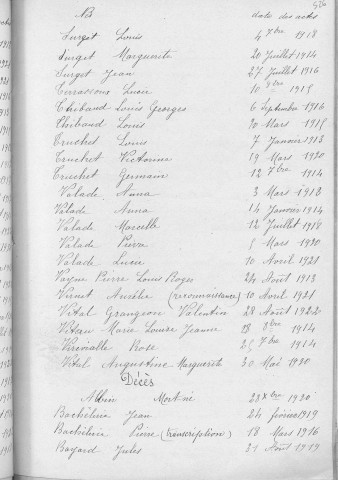 526
Nos date des actes
Surget Louis 4 7bre 1918
Surget Marguerite 20 Juillet 1914
Surget Jean 27 Juillet 1916
Terrassoux Lucie 10 1915
Thibaud Louis Georges 6 Septembre 1916
Thibaud Louis 30 Mars 1915
Truchet Louis 7 Janvier 1913
Truchet Victorine 19 Mars 1920
Truchet Germain 12 7bre 1914
Valade Anna 3 Mars 1913
Valade Anna 14 Janvier 1914
Valade Marcelle 12 Juillet 1918
Valade Pierre 5 Mars 1920
Valade Lucie 10 Avril 1921
Vayne Pierre Louis Roger 24 Août 1913
Virnet Aurélie (reconnaissance) 10 Avril 1921
Vital Grangeon Valentin 28 Août 1922
Marie Louise Jeanne 18 1914
Rose 25 7bre 1914
Vital Augustine Marguerite 30 Mai 1920
Décès
Albin Mort né 23 Xbre 1920
Bachélerie Jean 24 février 1919
Bachélerie Pierre (transcription) 18 Mars 1916
Bayard Jules 31 Août 1919